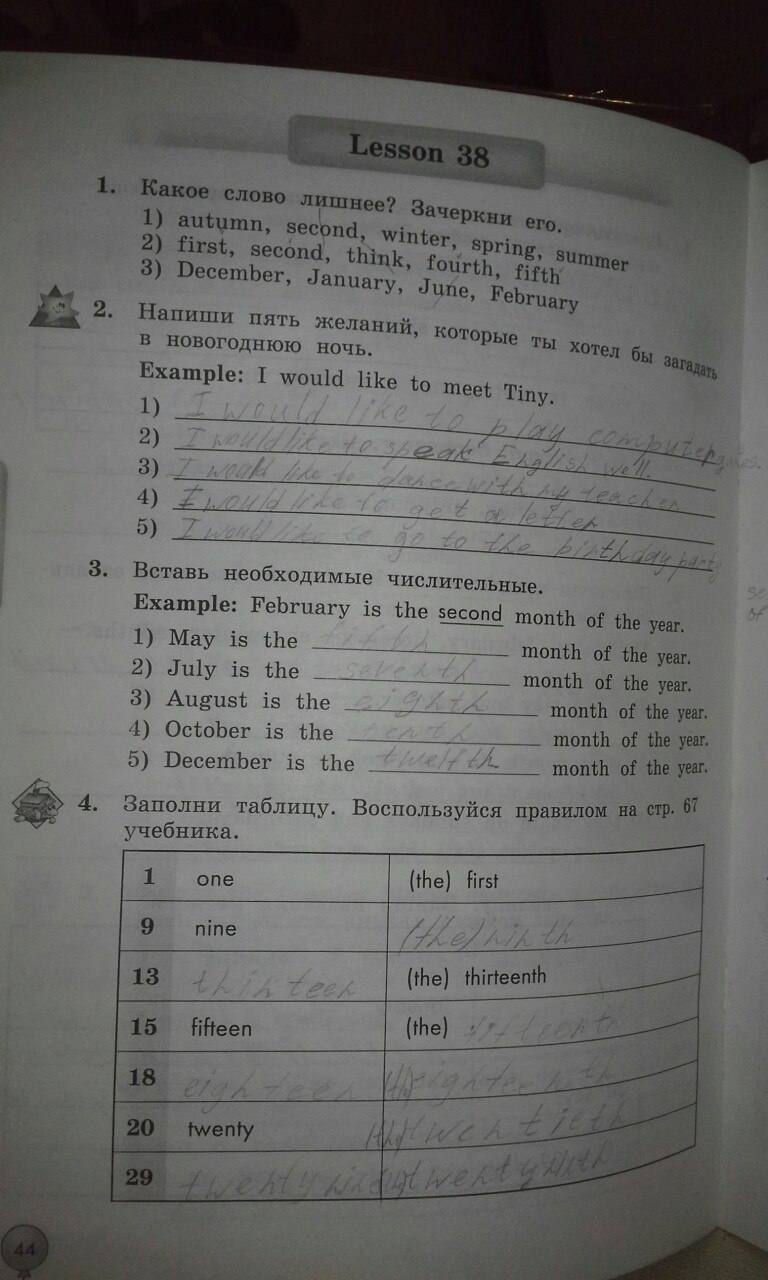 Lesson 38
1. Какое слово лишнее? Зачеркни его.
1) autumn, second, winter, spring, summer
2) first, second, think, fourth, fifth
3) December, January, June, February
2. Напиши пять желаний, которые ты хотел бы загадать
в новогоднюю ночь.
Example: I would like to meet Tiny.
1) I would like to play computer
2) I would like to speak English well.
3) I would like to dance with my teacher
4) I would like to get a letter
5) I would like to go to the birthday party
3. Вставь необходимые числительные.
Example: February is the second month of the year.
1) May is the fifth month of the year.
2) July is the seventh month of the year.
3) August is the eighth month of the year.
4) October is the tenth month of the year.
5) December is the twelfth month of the year.
4. Заполни таблицу. Воспользуйся правилом на стр. 67
учебника.
1 one (the) first
9 nine (the) ninth
13 thirteen (the) thirteenth
15 fifteen (the) fifteenth
18 eighteen (the) eighteenth
20 twenty (the) twentieth
29 twenty nine twenty
44